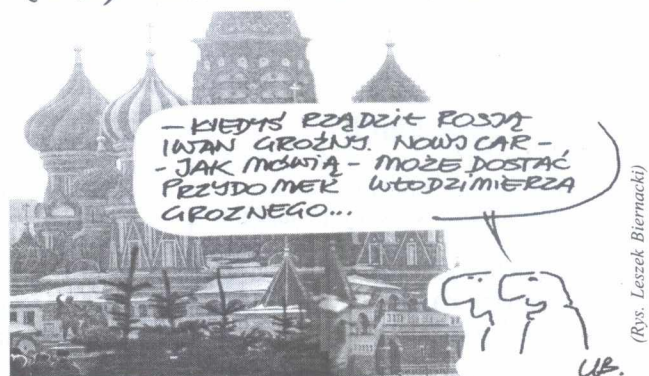 - KIEDYŚ RZĄDZIŁ ROSJĄ
IWAN GROŹNY. NOWY CAR -
- JAK MÓWIĄ - MOŻE DOSTAĆ
PRZYDOMEK WŁODZIMIERZA
GROZNEGO...
(Rys. Leszek Biernacki)
LB.